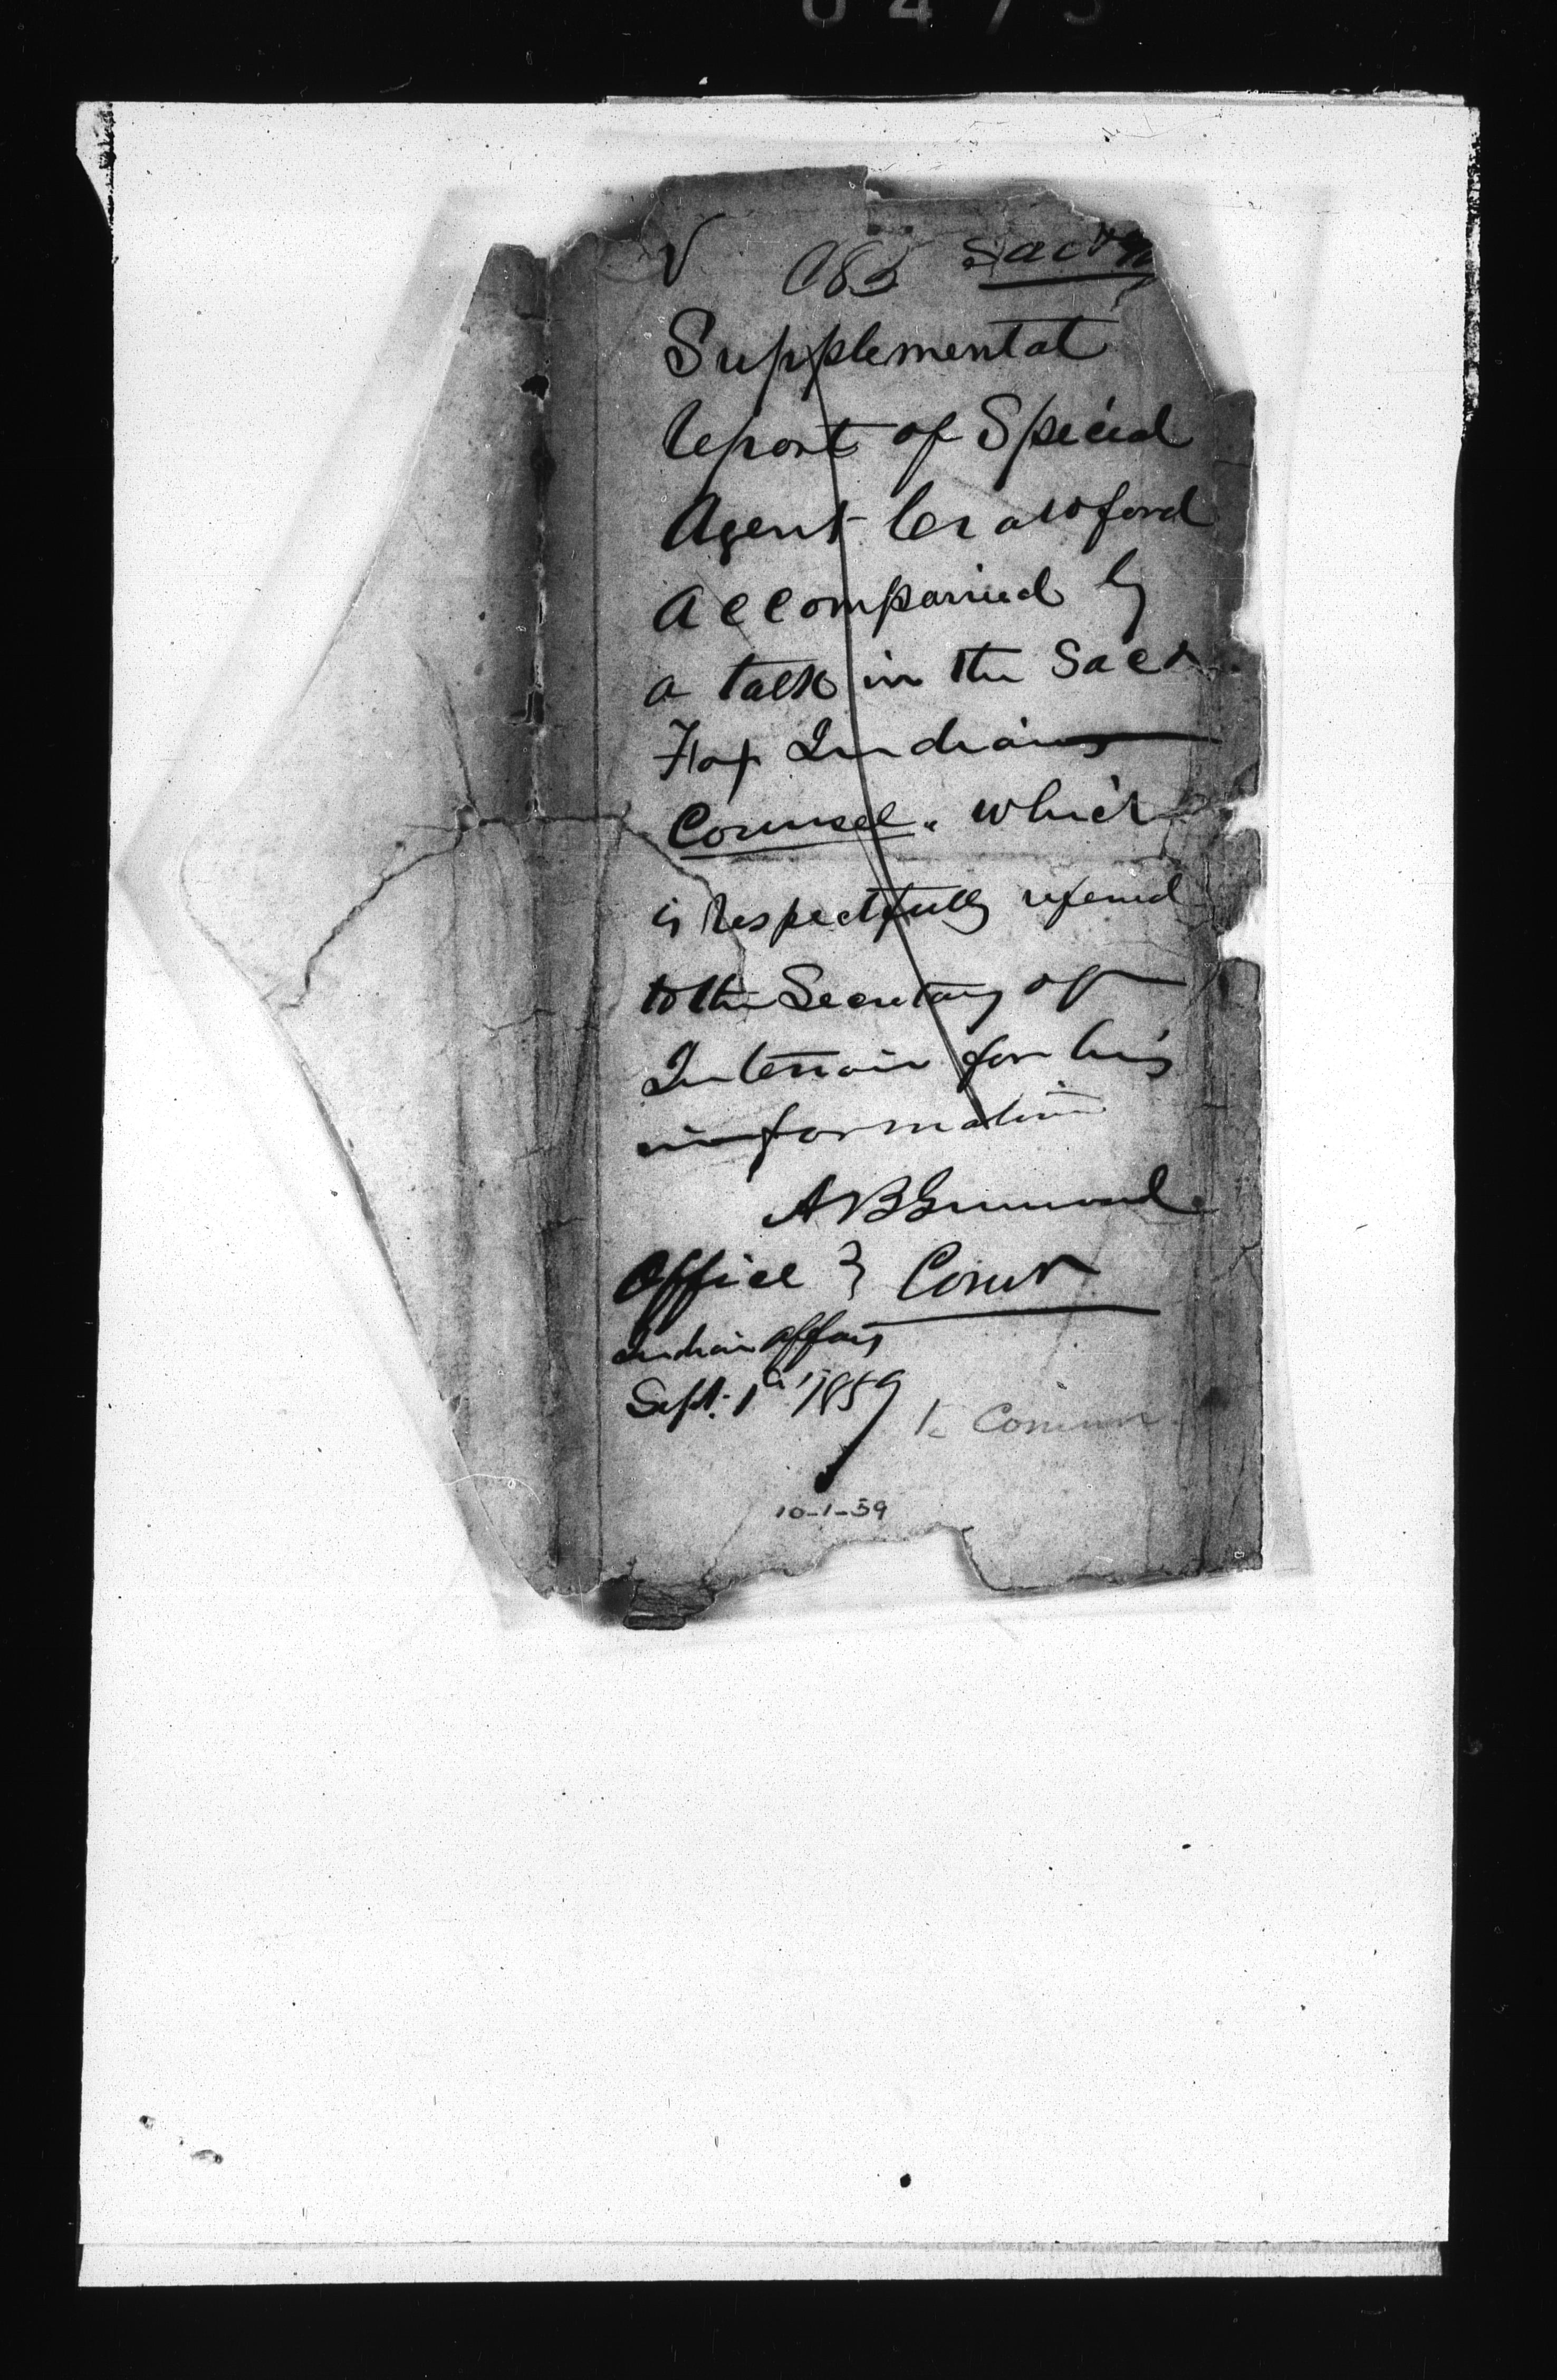 C 83 Sac &
Supplemental
report of Special
Agent Crawford
Accompanied by
a talk in the Sac &
Fox Indians
Counsel. which
is respectfully referred
to the Secretary of
Interior for his
information
A B Greenwood
Office } Comr
Indian Affairs
Sept. 1st 1859
To Commr
10-1-59